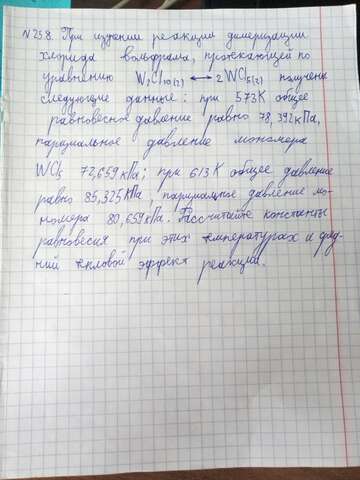 №258. При изучении реакции димеризации
хлорида вольфрама, протекающей по
уравнению W₂Cl₁₀(г) ⟷ 2WCl₅(г) получены
следующие данные: при 573К общее
равновесное давление равно 78,392кПа,
парциальное давление мономера
WCl₅ 72,659кПа; при 613К общее давление
равно 85,325кПа, парциальное давление мо-
номера 80,659кПа. Рассчитайте константы
равновесия при этих температурах и сред-
ний тепловой эффект реакции.